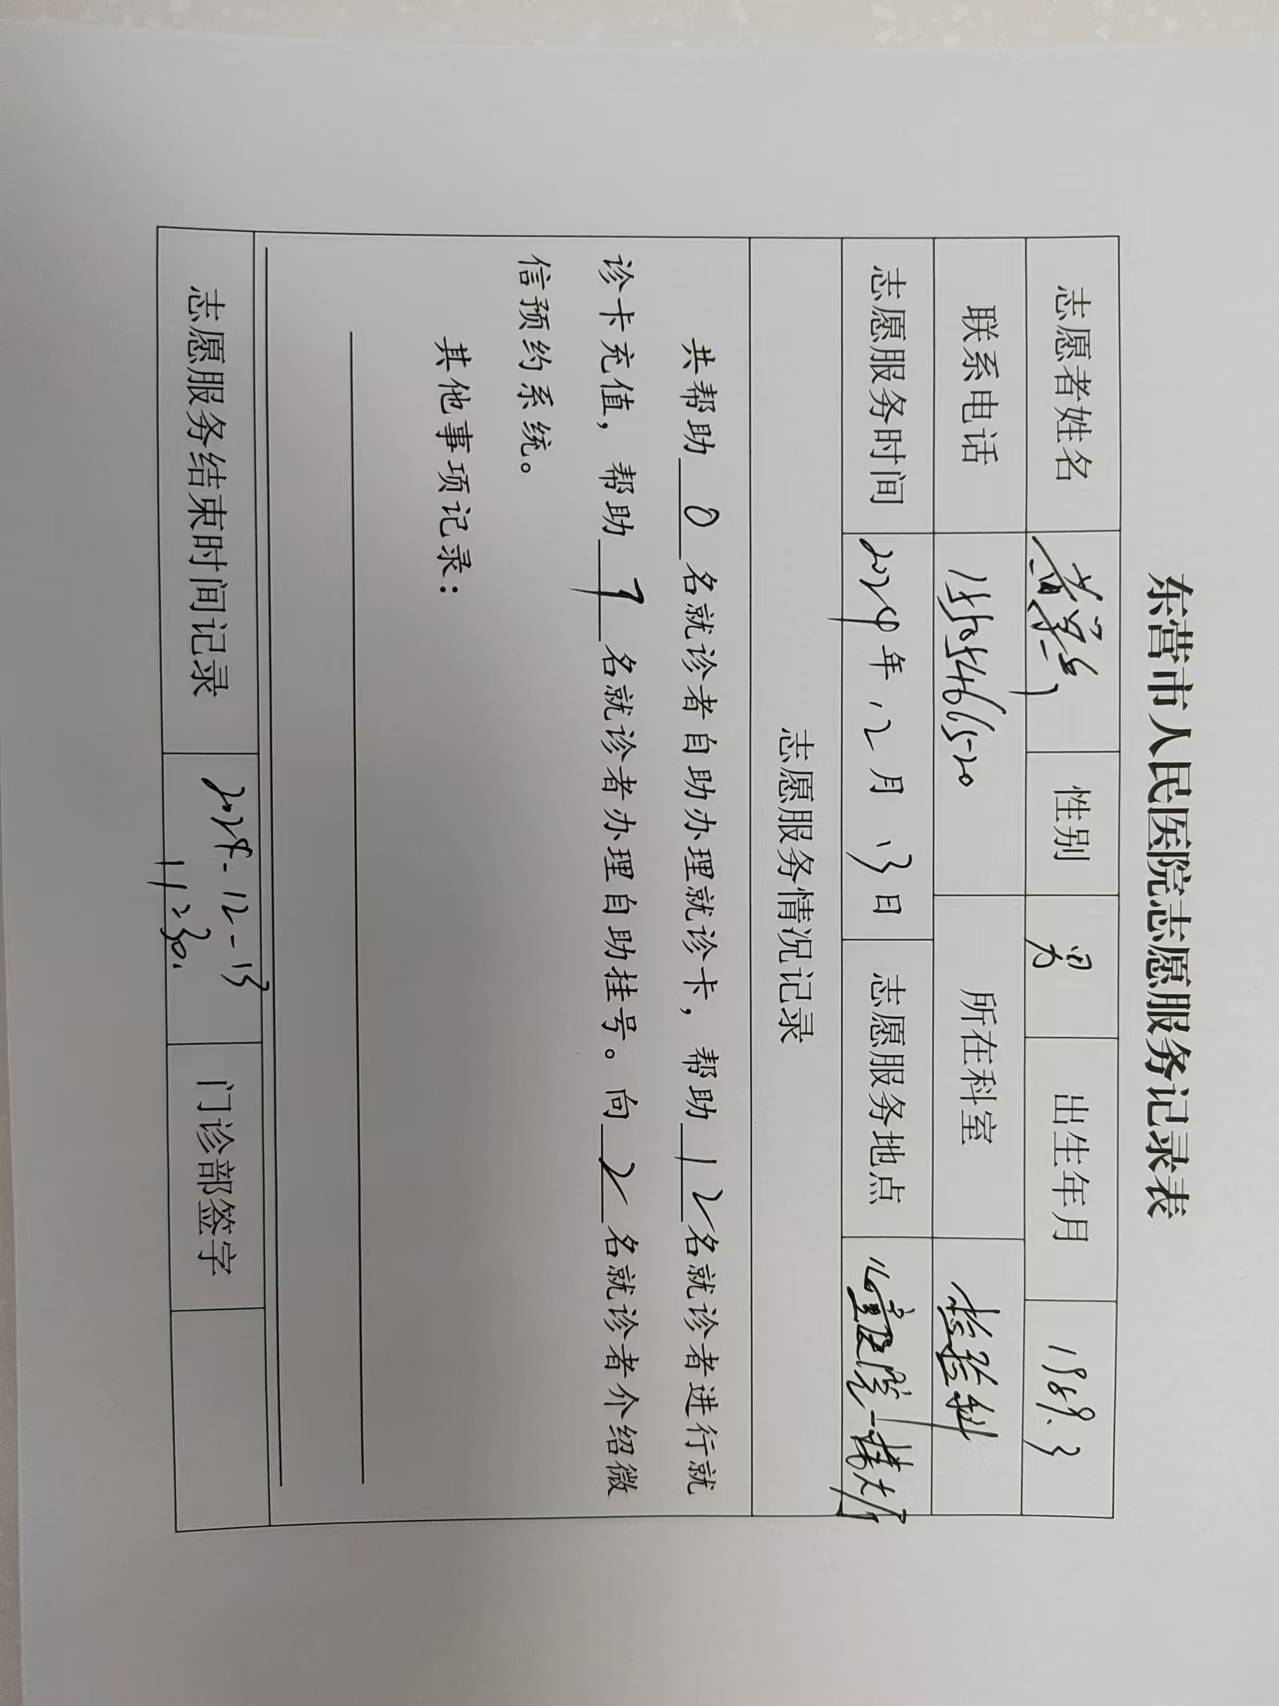 东营市人民医院志愿服务记录表
志愿者姓名 性别 男 出生年月 1989.3
联系电话 15505461520 所在科室 检验科
志愿服务时间 2024年12月13日 志愿服务地点 儿童医院一楼大厅
志愿服务情况记录
共帮助 0 名就诊者自助办理就诊卡，帮助 12 名就诊者进行就
诊卡充值，帮助 7 名就诊者办理自助挂号。向 2 名就诊者介绍微
信预约系统。
其他事项记录：
志愿服务结束时间记录 2024-12-13 门诊部签字
11:30.